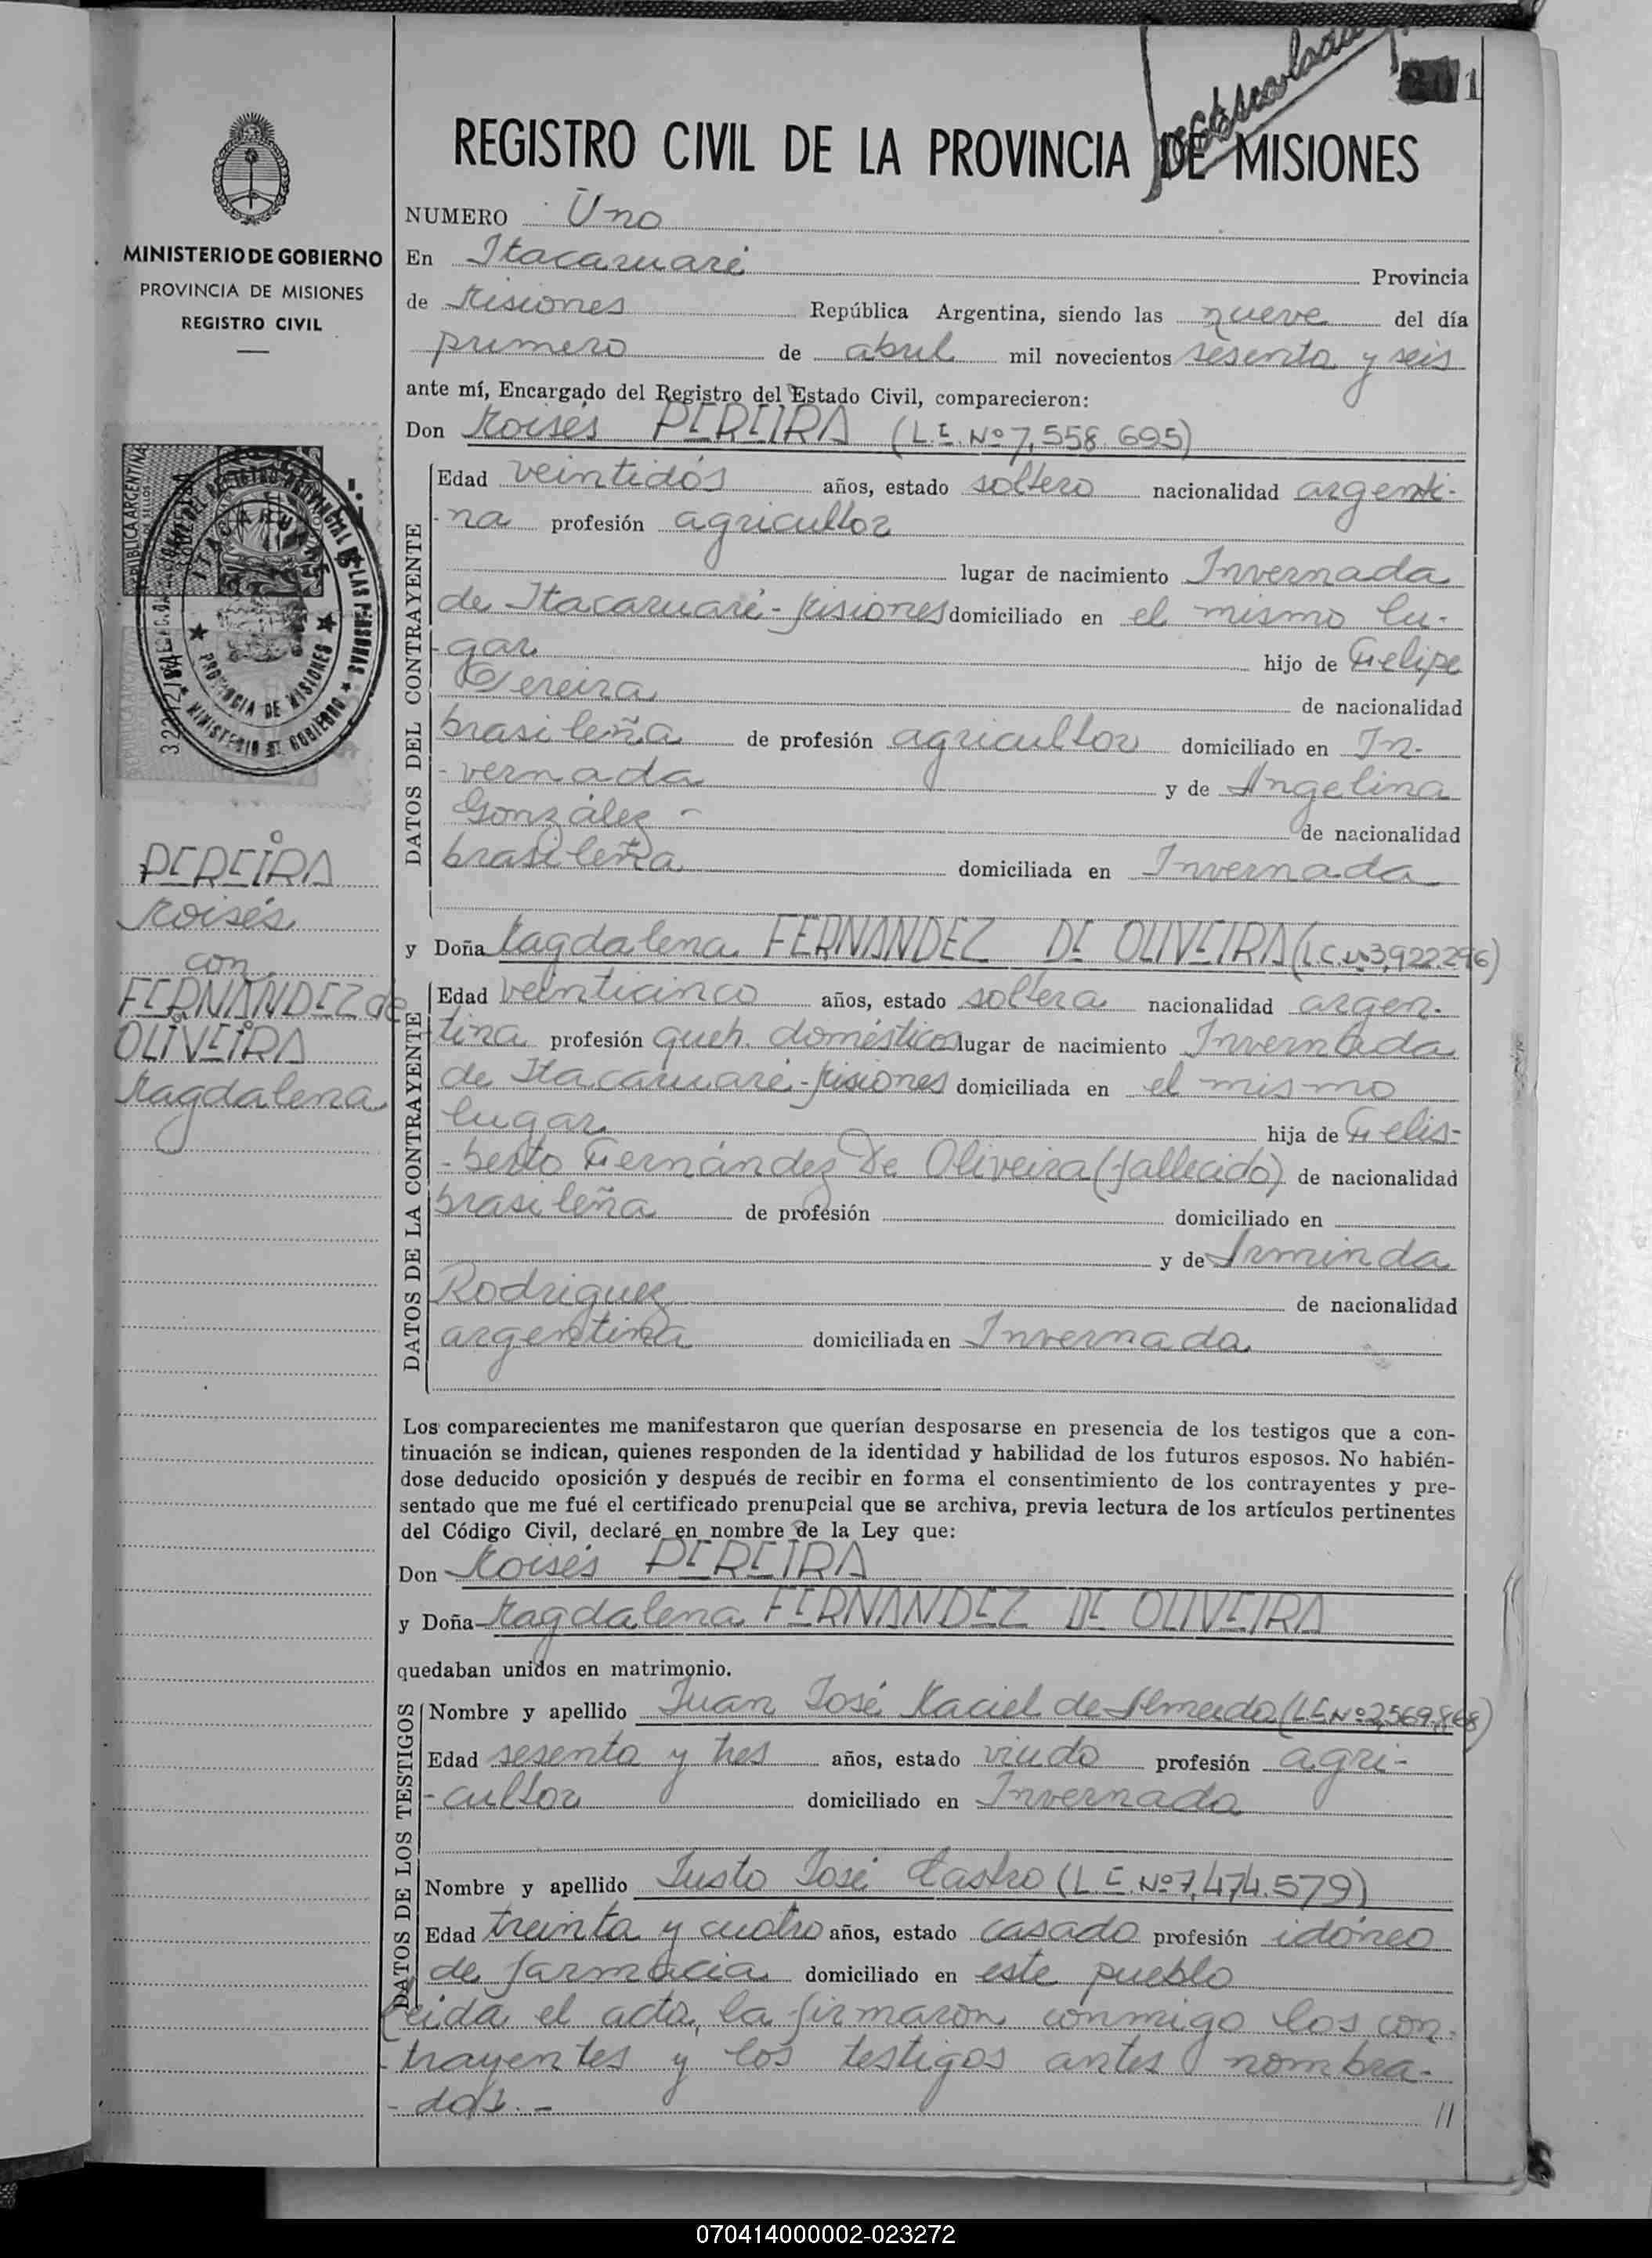 201
REGISTRO CIVIL DE LA PROVINCIA DE MISIONES
MINISTERIO DE GOBIERNO
PROVINCIA DE MISIONES
REGISTRO CIVIL
NUMERO Uno
En Itacaruaré Provincia
de Misiones República Argentina, siendo las nueve del día
primero de abril mil novecientos sesenta y seis
ante mí, Encargado del Registro del Estado Civil, comparecieron:
Don Moisés PEREIRA (L.E. Nº 7,558.695)
DATOS DEL CONTRAYENTE
Edad veintidós años, estado soltero nacionalidad argenti-
-na profesión agricultor
lugar de nacimiento Invernada
de Itacaruaré-Misiones domiciliado en el mismo lu-
-gar hijo de Felipe
Pereira de nacionalidad
brasileña de profesión agricultor domiciliado en In-
-vernada y de Angelina
González - de nacionalidad
brasileña domiciliada en Invernada
PEREIRA
Moisés
con
FERNANDEZ de
OLIVEIRA
Magdalena
y Doña Magdalena FERNANDEZ DE OLIVEIRA (L.C. Nº 3,922.296)
DATOS DE LA CONTRAYENTE
Edad veinticinco años, estado soltera nacionalidad argen-
tina profesión queh. domésticos lugar de nacimiento Invernada
de Itacaruaré-Misiones domiciliada en el mismo
lugar hija de Felis-
-berto Fernández De Oliveira (fallecido) de nacionalidad
brasileña de profesión domiciliado en
y de Arminda
Rodriguez de nacionalidad
argentina domiciliada en Invernada
Los comparecientes me manifestaron que querían desposarse en presencia de los testigos que a con-
tinuación se indican, quienes responden de la identidad y habilidad de los futuros esposos. No habién-
dose deducido oposición y después de recibir en forma el consentimiento de los contrayentes y pre-
sentado que me fué el certificado prenupcial que se archiva, previa lectura de los artículos pertinentes
del Código Civil, declaré en nombre de la Ley que:
Don Moisés PEREIRA
y Doña Magdalena FERNANDEZ DE OLIVEIRA
quedaban unidos en matrimonio.
DATOS DE LOS TESTIGOS
Nombre y apellido Juan José Maciel de Almeida (L.E. Nº 2,569.868)
Edad sesenta y tres años, estado viudo profesión agri-
-cultor domiciliado en Invernada
Nombre y apellido Justo José Castro (L.E. Nº 7,474.579)
Edad treinta y cuatro años, estado casado profesión idóneo
de farmacia domiciliado en este pueblo
Leida el acta, la firmaron conmigo los con-
-trayentes y los testigos antes nombra-
-dos.- //
070414000002-023272